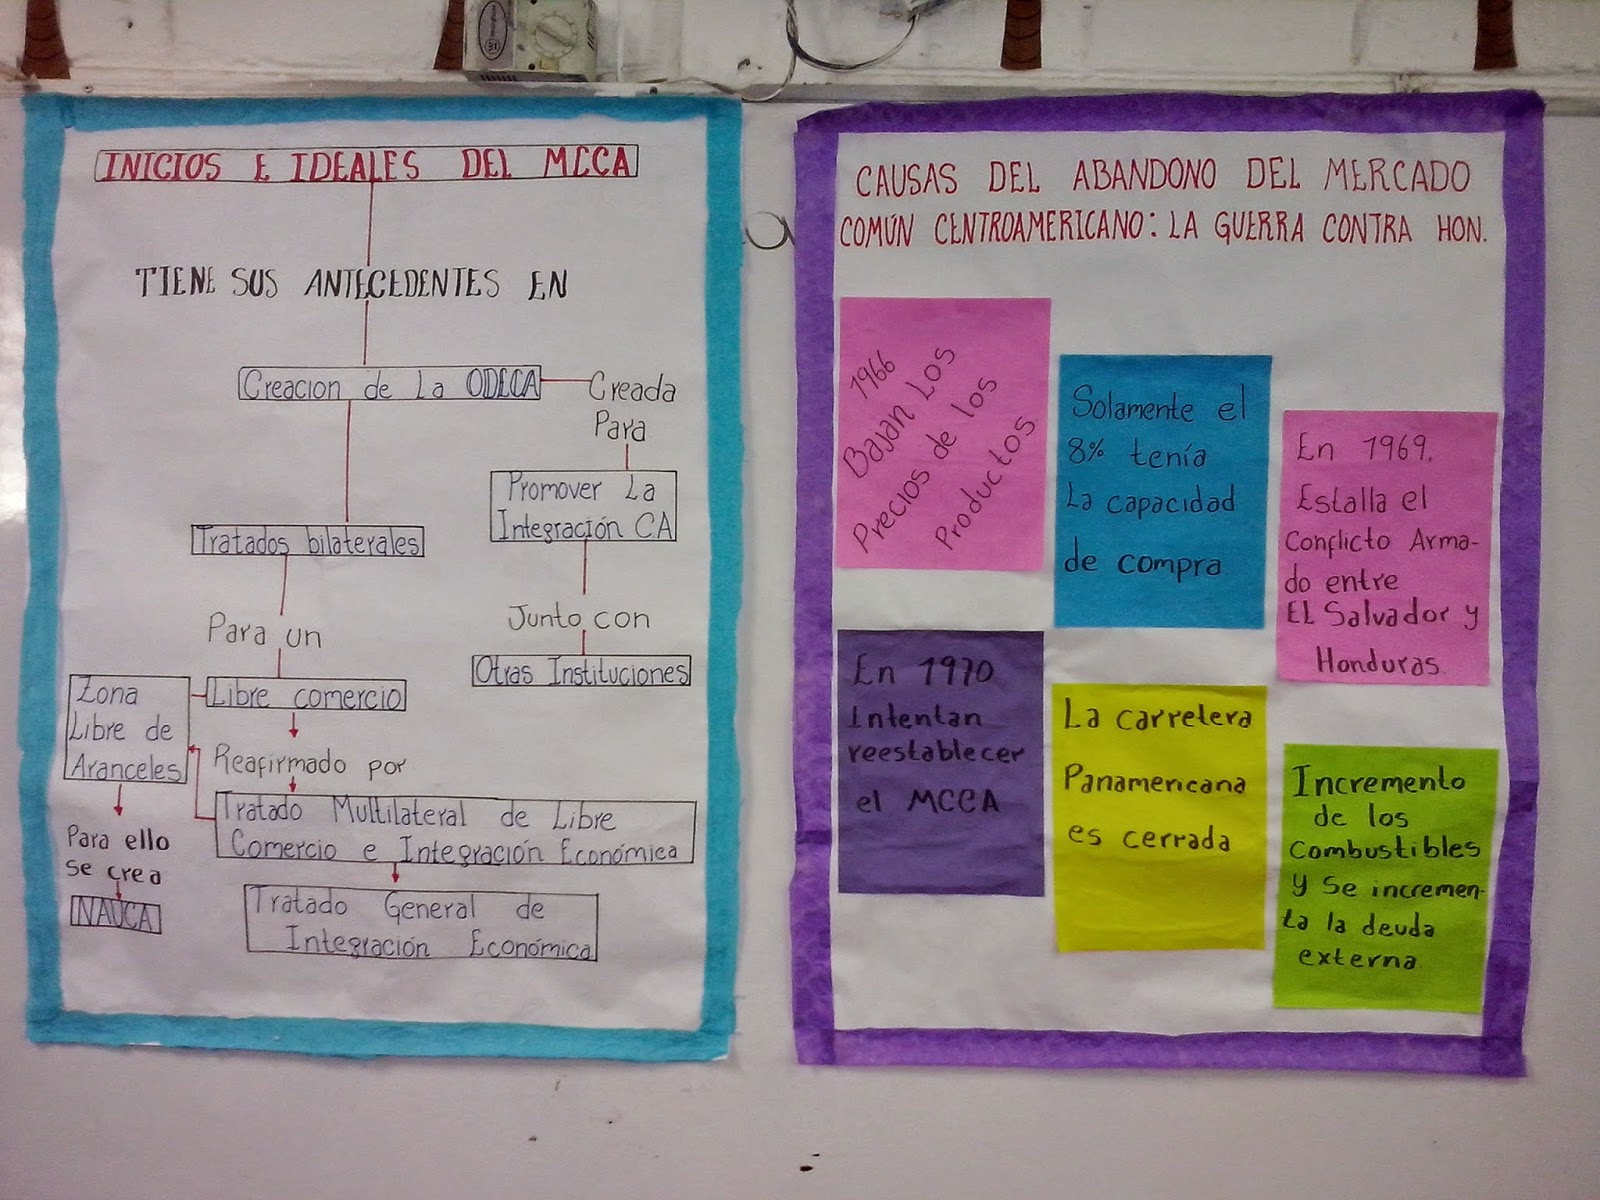 INICIOS E IDEALES DEL MCCA
TIENE SUS ANTECEDENTES EN
Creacion de La ODECA
Creada
Para
Promover La
Integración CA
Junto con
Otras Instituciones
Tratados bilaterales
Para un
Libre comercio
Zona
Libre de
Aranceles
Para ello
se crea
NAUCA
Reafirmado por
Tratado Multilateral de Libre
Comercio e Integración Económica
Tratado General de
Integración Económica
CAUSAS DEL ABANDONO DEL MERCADO
COMÚN CENTROAMERICANO: LA GUERRA CONTRA HON.
1966
Bajan Los
Precios de los
Productos.
Solamente el
8% tenía
La capacidad
de compra
En 1969.
Estalla el
Conflicto Arma-
do entre
EL Salvador y
Honduras.
En 1970
Intentan
reestablecer
el MCCA
La carretera
Panamericana
es cerrada
Incremento
de los
Combustibles
y se incremen-
ta la deuda
externa